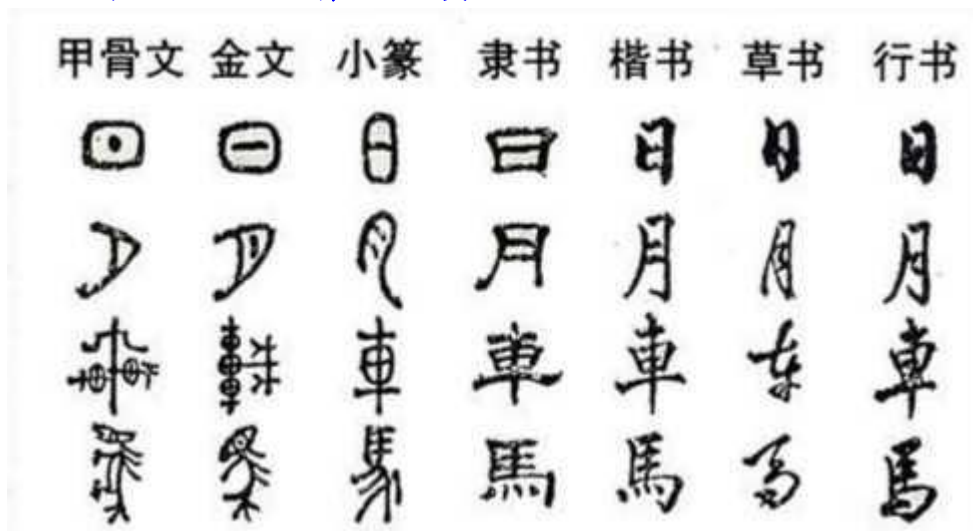 甲骨文 金文 小篆 隶书 楷书 草书 行书
日 日 日 日 日 日 日
月 月 月 月 月 月 月
車 車 車 車 車 車 車
馬 馬 馬 馬 馬 馬 馬